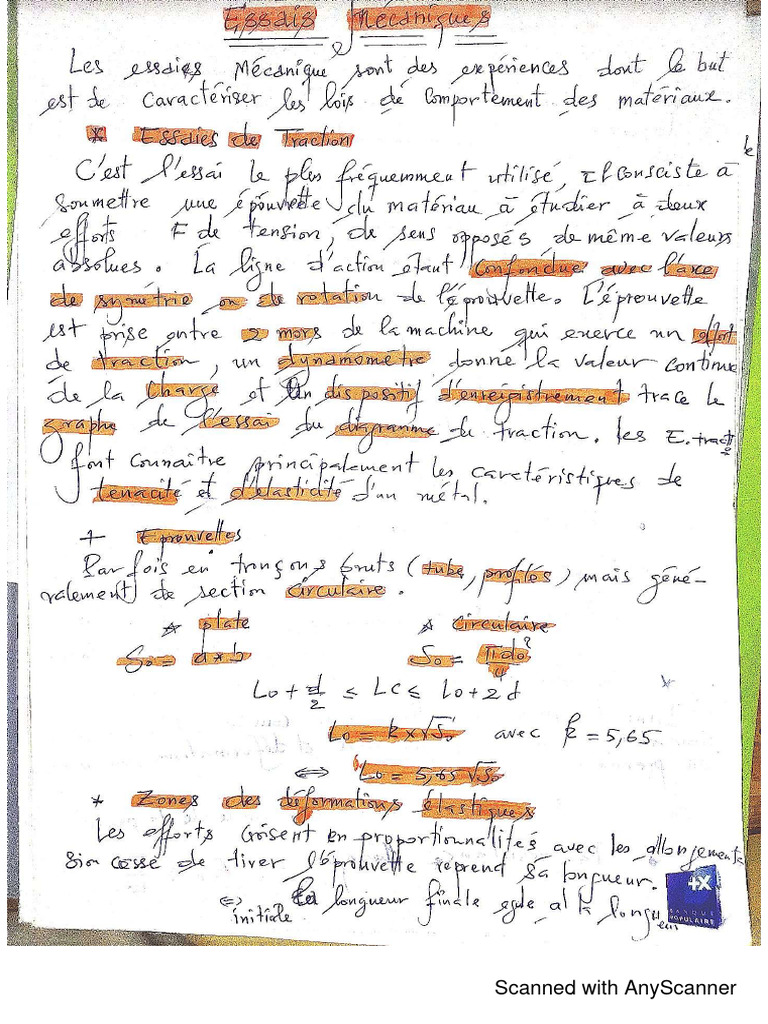 Essais Mecaniques
Les essaies Mécanique sont des expériences dont le but
est de caractériser les lois de comportement des matériaux.
* Essaies de Traction
C'est l'essai le plus fréquemment utilisé, il consciste à
soumettre une éprouvette du matériau à étudier à deux
efforts F de tension, de sens opposés de même valeurs
absolues. La ligne d'action étant confondue avec l'axe
de symétrie ou de rotation de l'éprouvette. L'éprouvette
est prise entre 2 mors de la machine qui exerce un effort
de traction, un dynamomètre donne la valeur continue
de la charge et un dispositif d'enregistrement trace le
graphe de l'essai du diagramme de traction. les E.tract
font connaître principalement les caractéristiques de
tenacité et d'élasticité d'un métal.
+ Eprouvettes
Parfois en tronçons bruts (tube, profilés) mais géné-
ralement de section circulaire.
* plate * Circulaire
S₀ = a*b S₀ = πd₀²/4
L₀ + d/2 ≤ Lc ≤ L₀ + 2d
L₀ = k x √S₀ avec k = 5,65
⇔ L₀ = 5,65 √S₀
* Zones des déformations élastiques
Les efforts croisent en proportionnalités avec les allongements
si on cesse de tirer l'éprouvette reprend sa longueur.
⇔ la longueur finale egale a la longueur
initiale
BANQUE
POPULAIRE
Scanned with AnyScanner